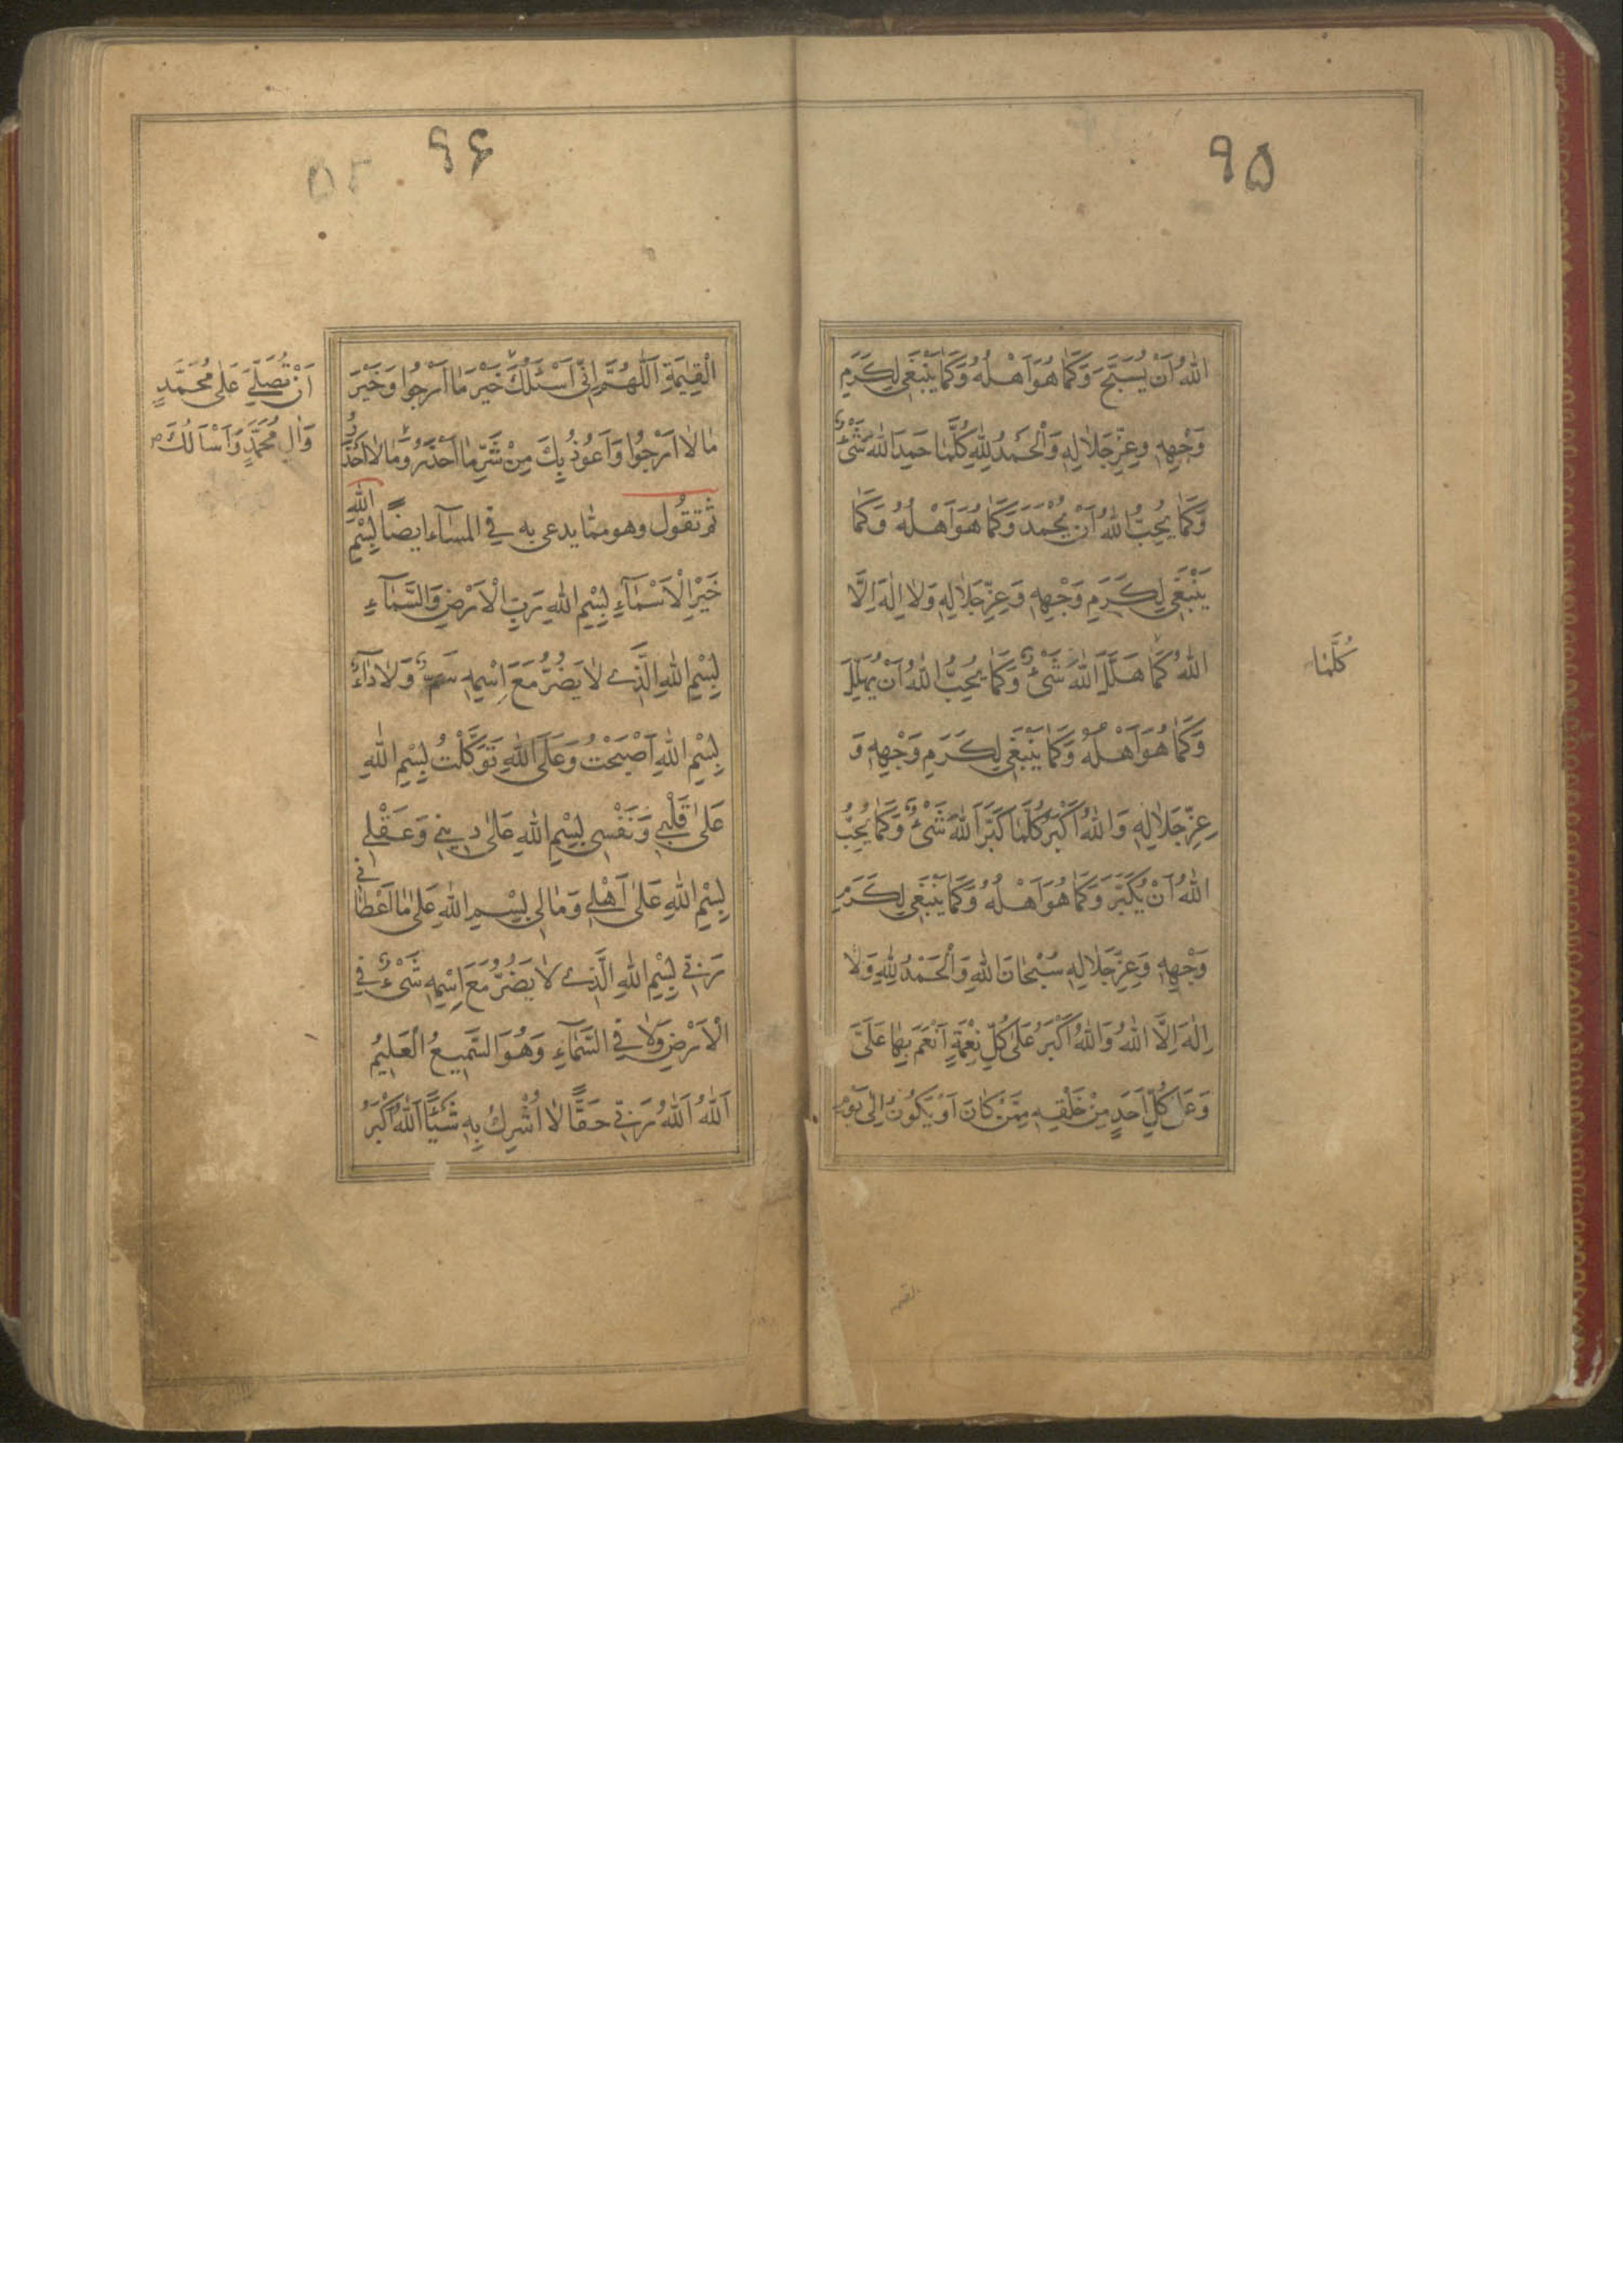 ٩۵
اللهُ اَنْ يُسَبَّحَ وَكَمٰا هُوَ اَهْلُهُ وَكَمٰا يَنْبَغى لِكَرَمِ
وَجْهِهِ وَعِزِّ جَلاٰلِهِ وَاَلْحَمْدُ لِلّٰهِ كُلَّمٰا حَمِدَ اللهَ شَىْءٌ
وَكَمٰا يُحِبُّ اللهُ اَنْ يُحْمَدَ وَكَمٰا هُوَ اَهْلُهُ وَكَمٰا
يَنْبَغى لِكَرَمِ وَجْهِهِ وَعِزِّ جَلاٰلِهِ وَلاٰ اِلٰهَ اِلَّا
اللهُ كَمٰا هَلَّلَ اللهَ شَىْءٌ وَكَمٰا يُحِبُّ اللهُ اَنْ يُهَلَّلَ
كُلَّمٰا
وَكَمٰا هُوَ اَهْلُهُ وَكَمٰا يَنْبَغى لِكَرَمِ وَجْهِهِ وَ
عِزِّ جَلاٰلِهِ وَاللهُ اَكْبَرُ كُلَّمٰا كَبَّرَ اللهَ شَىْءٌ وَكَمٰا يُحِبُّ
اللهُ اَنْ يُكَبَّرَ وَكَمٰا هُوَ اَهْلُهُ وَكَمٰا يَنْبَغى لِكَرَمِ
وَجْهِهِ وَعِزِّ جَلاٰلِهِ سُبْحٰانَ اللهِ وَاَلْحَمْدُ لِلّٰهِ وَلاٰ
اِلٰهَ اِلَّا اللهُ وَاللهُ اَكْبَرُ عَلىٰ كُلِّ نِعْمَةٍ اَنْعَمَ بِهٰا عَلَىَّ
وَعَلىٰ كُلِّ اَحَدٍ مِنْ خَلْقِهِ مِمَّنْ كٰانَ اَوْ يَكُونُ اِلىٰ يَوْمِ
القيمة
٩۶
۵۲
الْقِيٰمَةِ اَللّٰهُمَّ اِنّى اَسْئَلُكَ خَيْرَ مٰا اَرْجُوا وَخَيْرَ
اَنْ تُصَلِّىَ عَلىٰ مُحَمَّدٍ
وَاٰلِ مُحَمَّدٍ وَاَسْاَلُكَ
مٰا لاٰ اَرْجُوا وَاَعُوذُ بِكَ مِنْ شَرِّ مٰا اَحْذَرُ وَمٰا لاٰ اَحْذَرُ
ثم تقُول وهو ممّا يدعى به فى المسٰآء ايضًا بِسْمِ اللهِ
خَيْرِ الْاَسْمٰآءِ بِسْمِ اللهِ رَبِّ الْاَرْضِ وَالسَّمٰآءِ
بِسْمِ اللهِ الَّذى لاٰ يَضُرُّ مَعَ اِسْمِهِ سَمٌّ وَلاٰ دٰآءٌ
بِسْمِ اللهِ اَصْبَحْتُ وَعَلَى اللهِ تَوَكَّلْتُ بِسْمِ اللهِ
عَلىٰ قَلْبى وَنَفْسى بِسْمِ اللهِ عَلىٰ دينى وَعَقْلى
بِسْمِ اللهِ عَلىٰ اَهْلى وَمٰالى بِسْمِ اللهِ عَلىٰ مٰا اَعْطٰانى
رَبّى بِسْمِ اللهِ الَّذى لاٰ يَضُرُّ مَعَ اِسْمِهِ شَىْءٌ فِى
الْاَرْضِ وَلاٰ فِى السَّمٰآءِ وَهُوَ السَّميعُ الْعَليمُ
اَللهُ اَللهُ رَبّى حَقًّا لاٰ اُشْرِكُ بِهِ شَيْئًا اَللهُ اَكْبَرُ